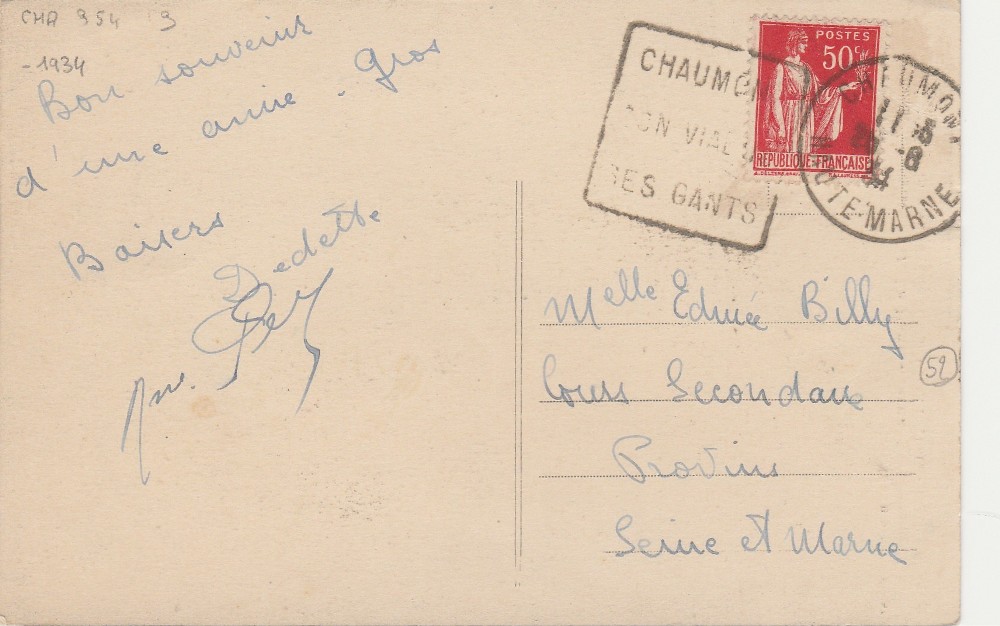 CHA 954 9
-1934
Bon souvenir
d'une amie. Gros
Baisers
Dedette
CHAUMON
SON VIAD
SES GANTS
POSTES
50c
REPUBLIQUE FRANÇAISE
CHAUMONT
HAUTE-MARNE
Melle Edmée Billy
Cours Secondaire
Provins
Seine et Marne
52